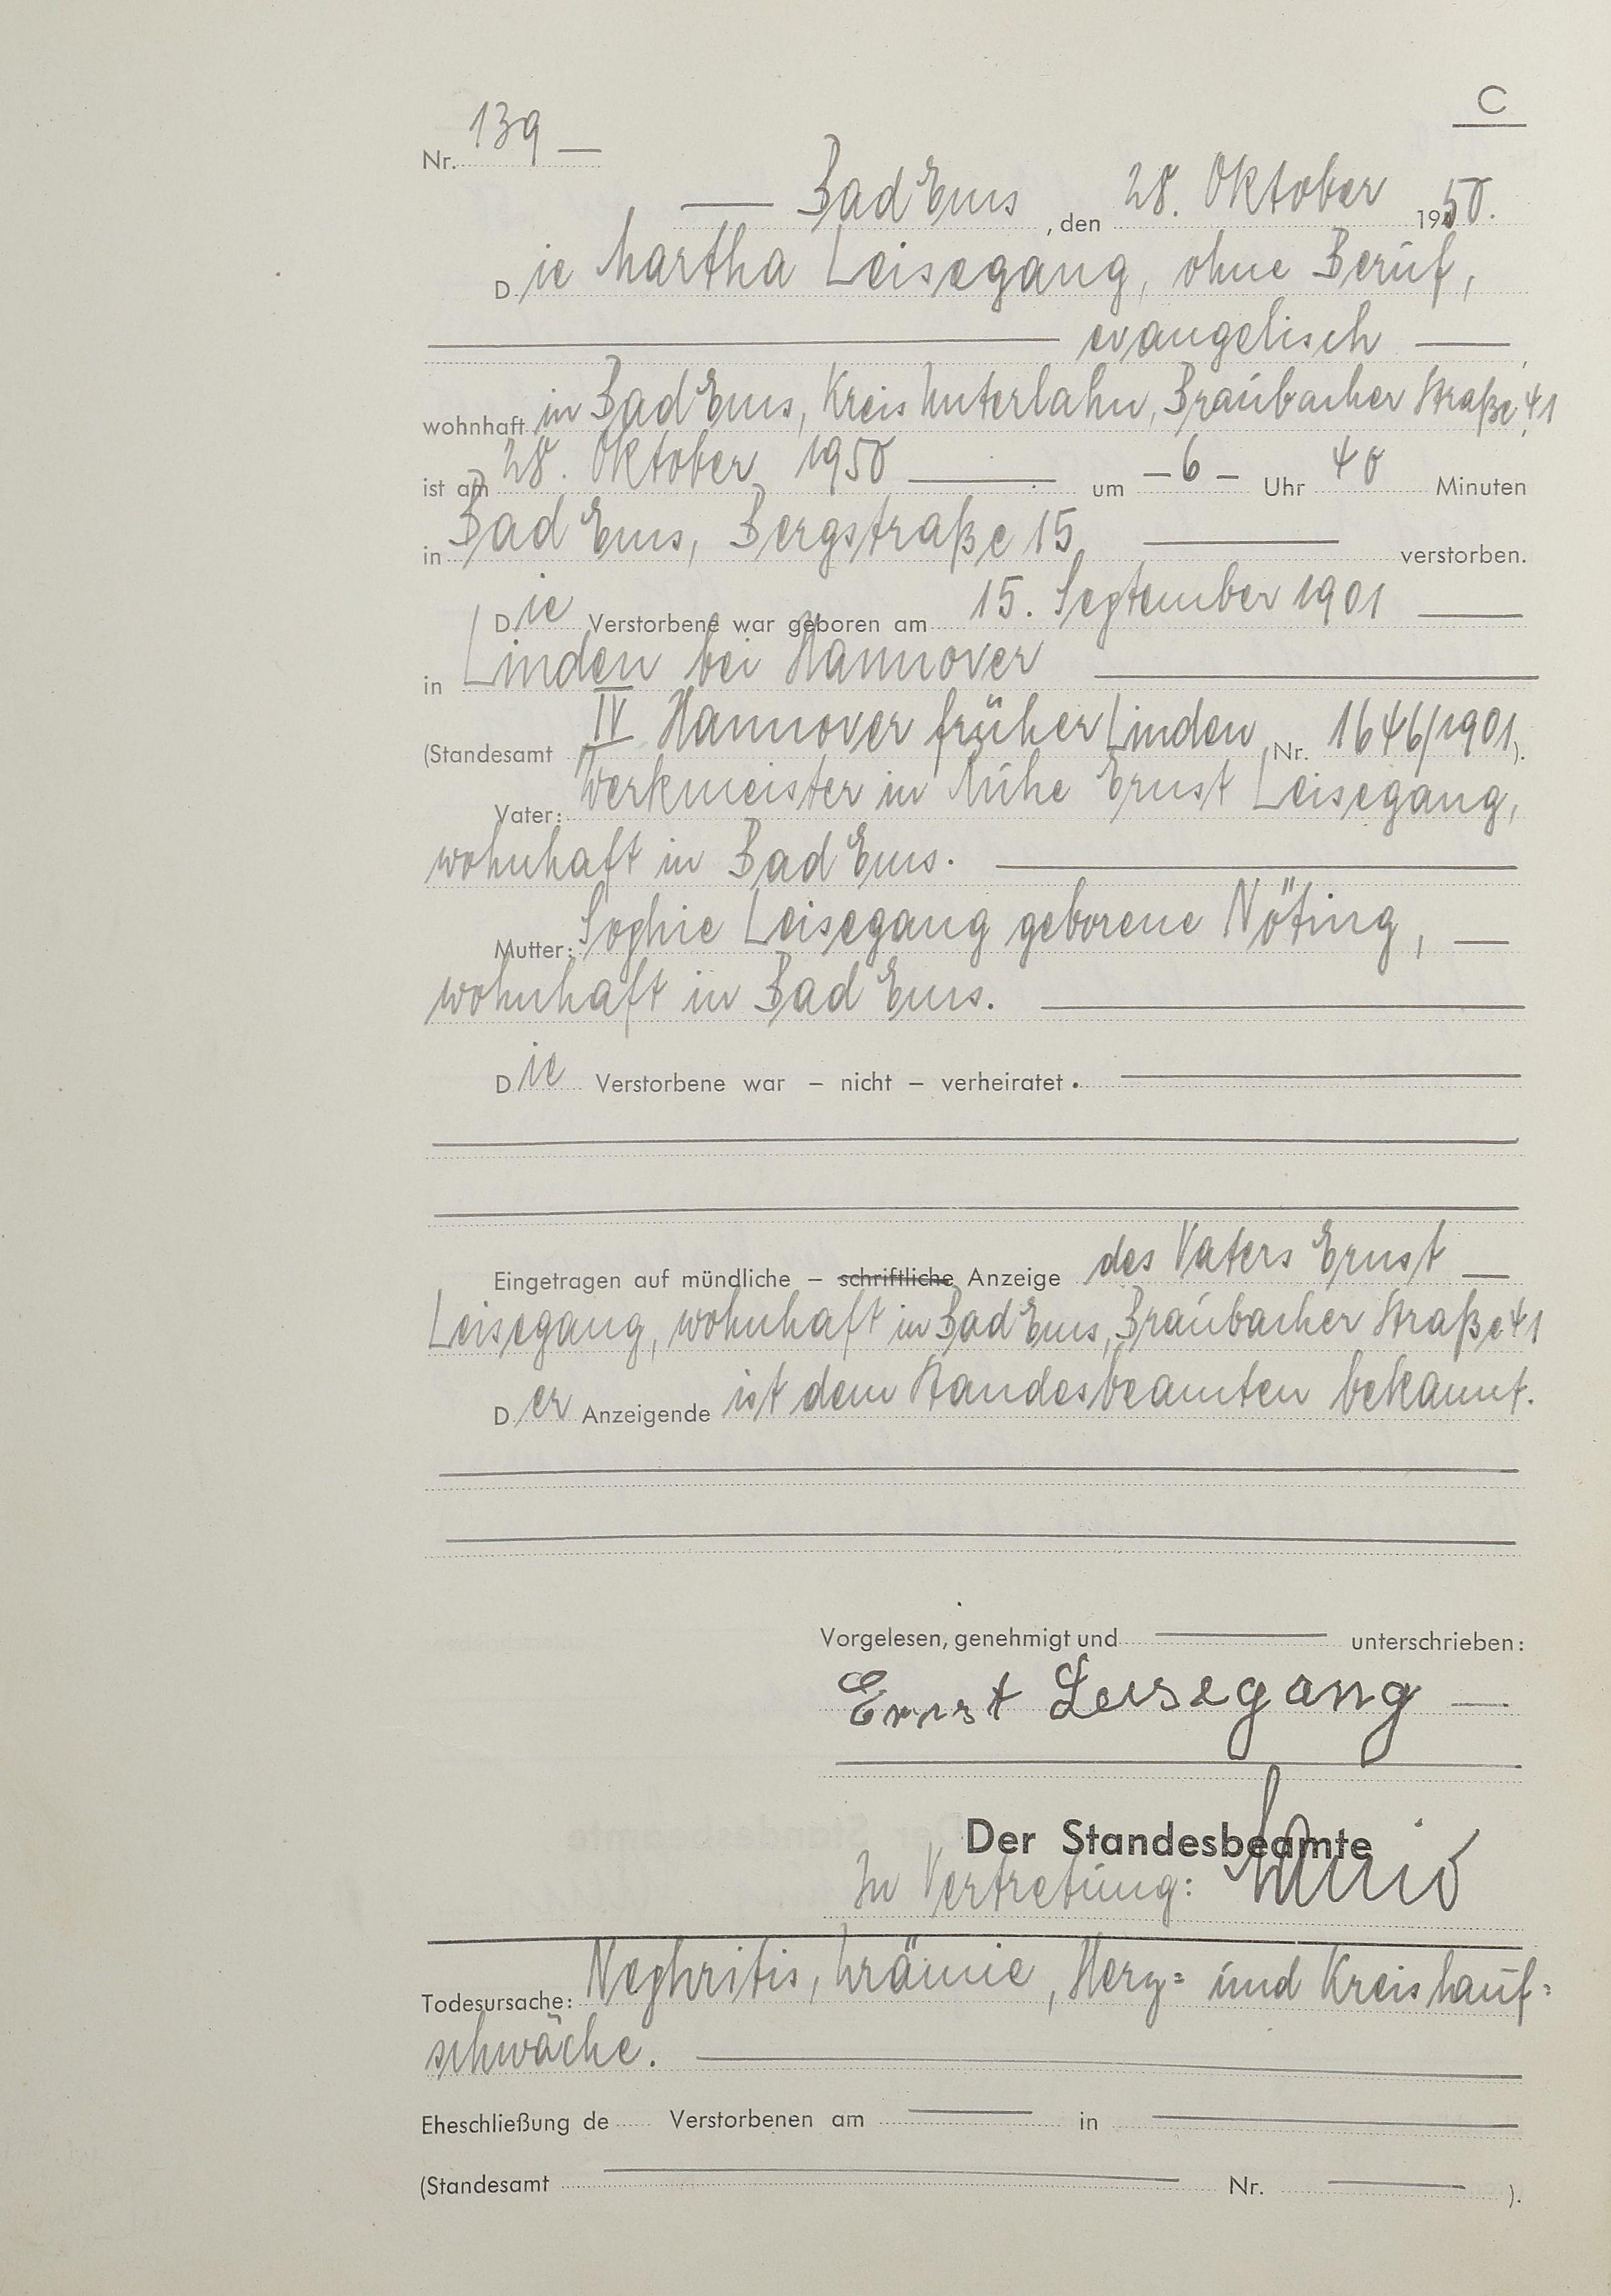 C
Nr. 139 —
— Bad Ems, den 28. Oktober 1950.
Die Martha Leisegang, ohne Beruf,
— evangelisch —,
wohnhaft in Bad Ems, Kreis Unterlahn, Braubacher Straße 41,
ist am 28. Oktober 1950 — um – 6 – Uhr 40 Minuten
in Bad Ems, Bergstraße 15 — verstorben.
Die Verstorbene war geboren am 15. September 1901 —
in Linden bei Hannover —
(Standesamt IV Hannover früher Linden Nr. 1646/1901).
Vater: Werkmeister in Ruhe Ernst Leisegang,
wohnhaft in Bad Ems. —
Mutter: Sophie Leisegang geborene Nöting, —
wohnhaft in Bad Ems. —
Die Verstorbene war – nicht – verheiratet. —
Eingetragen auf mündliche – schriftliche Anzeige des Vaters Ernst —
Leisegang, wohnhaft in Bad Ems, Braubacher Straße 41
Der Anzeigende ist dem Standesbeamten bekannt.
Vorgelesen, genehmigt und — unterschrieben:
Ernst Leisegang —
Der Standesbeamte
In Vertretung:
Todesursache: Nephritis, Urämie, Herz= und Kreislauf=
schwäche. —
Eheschließung de Verstorbenen am — in —
(Standesamt — Nr. — ).